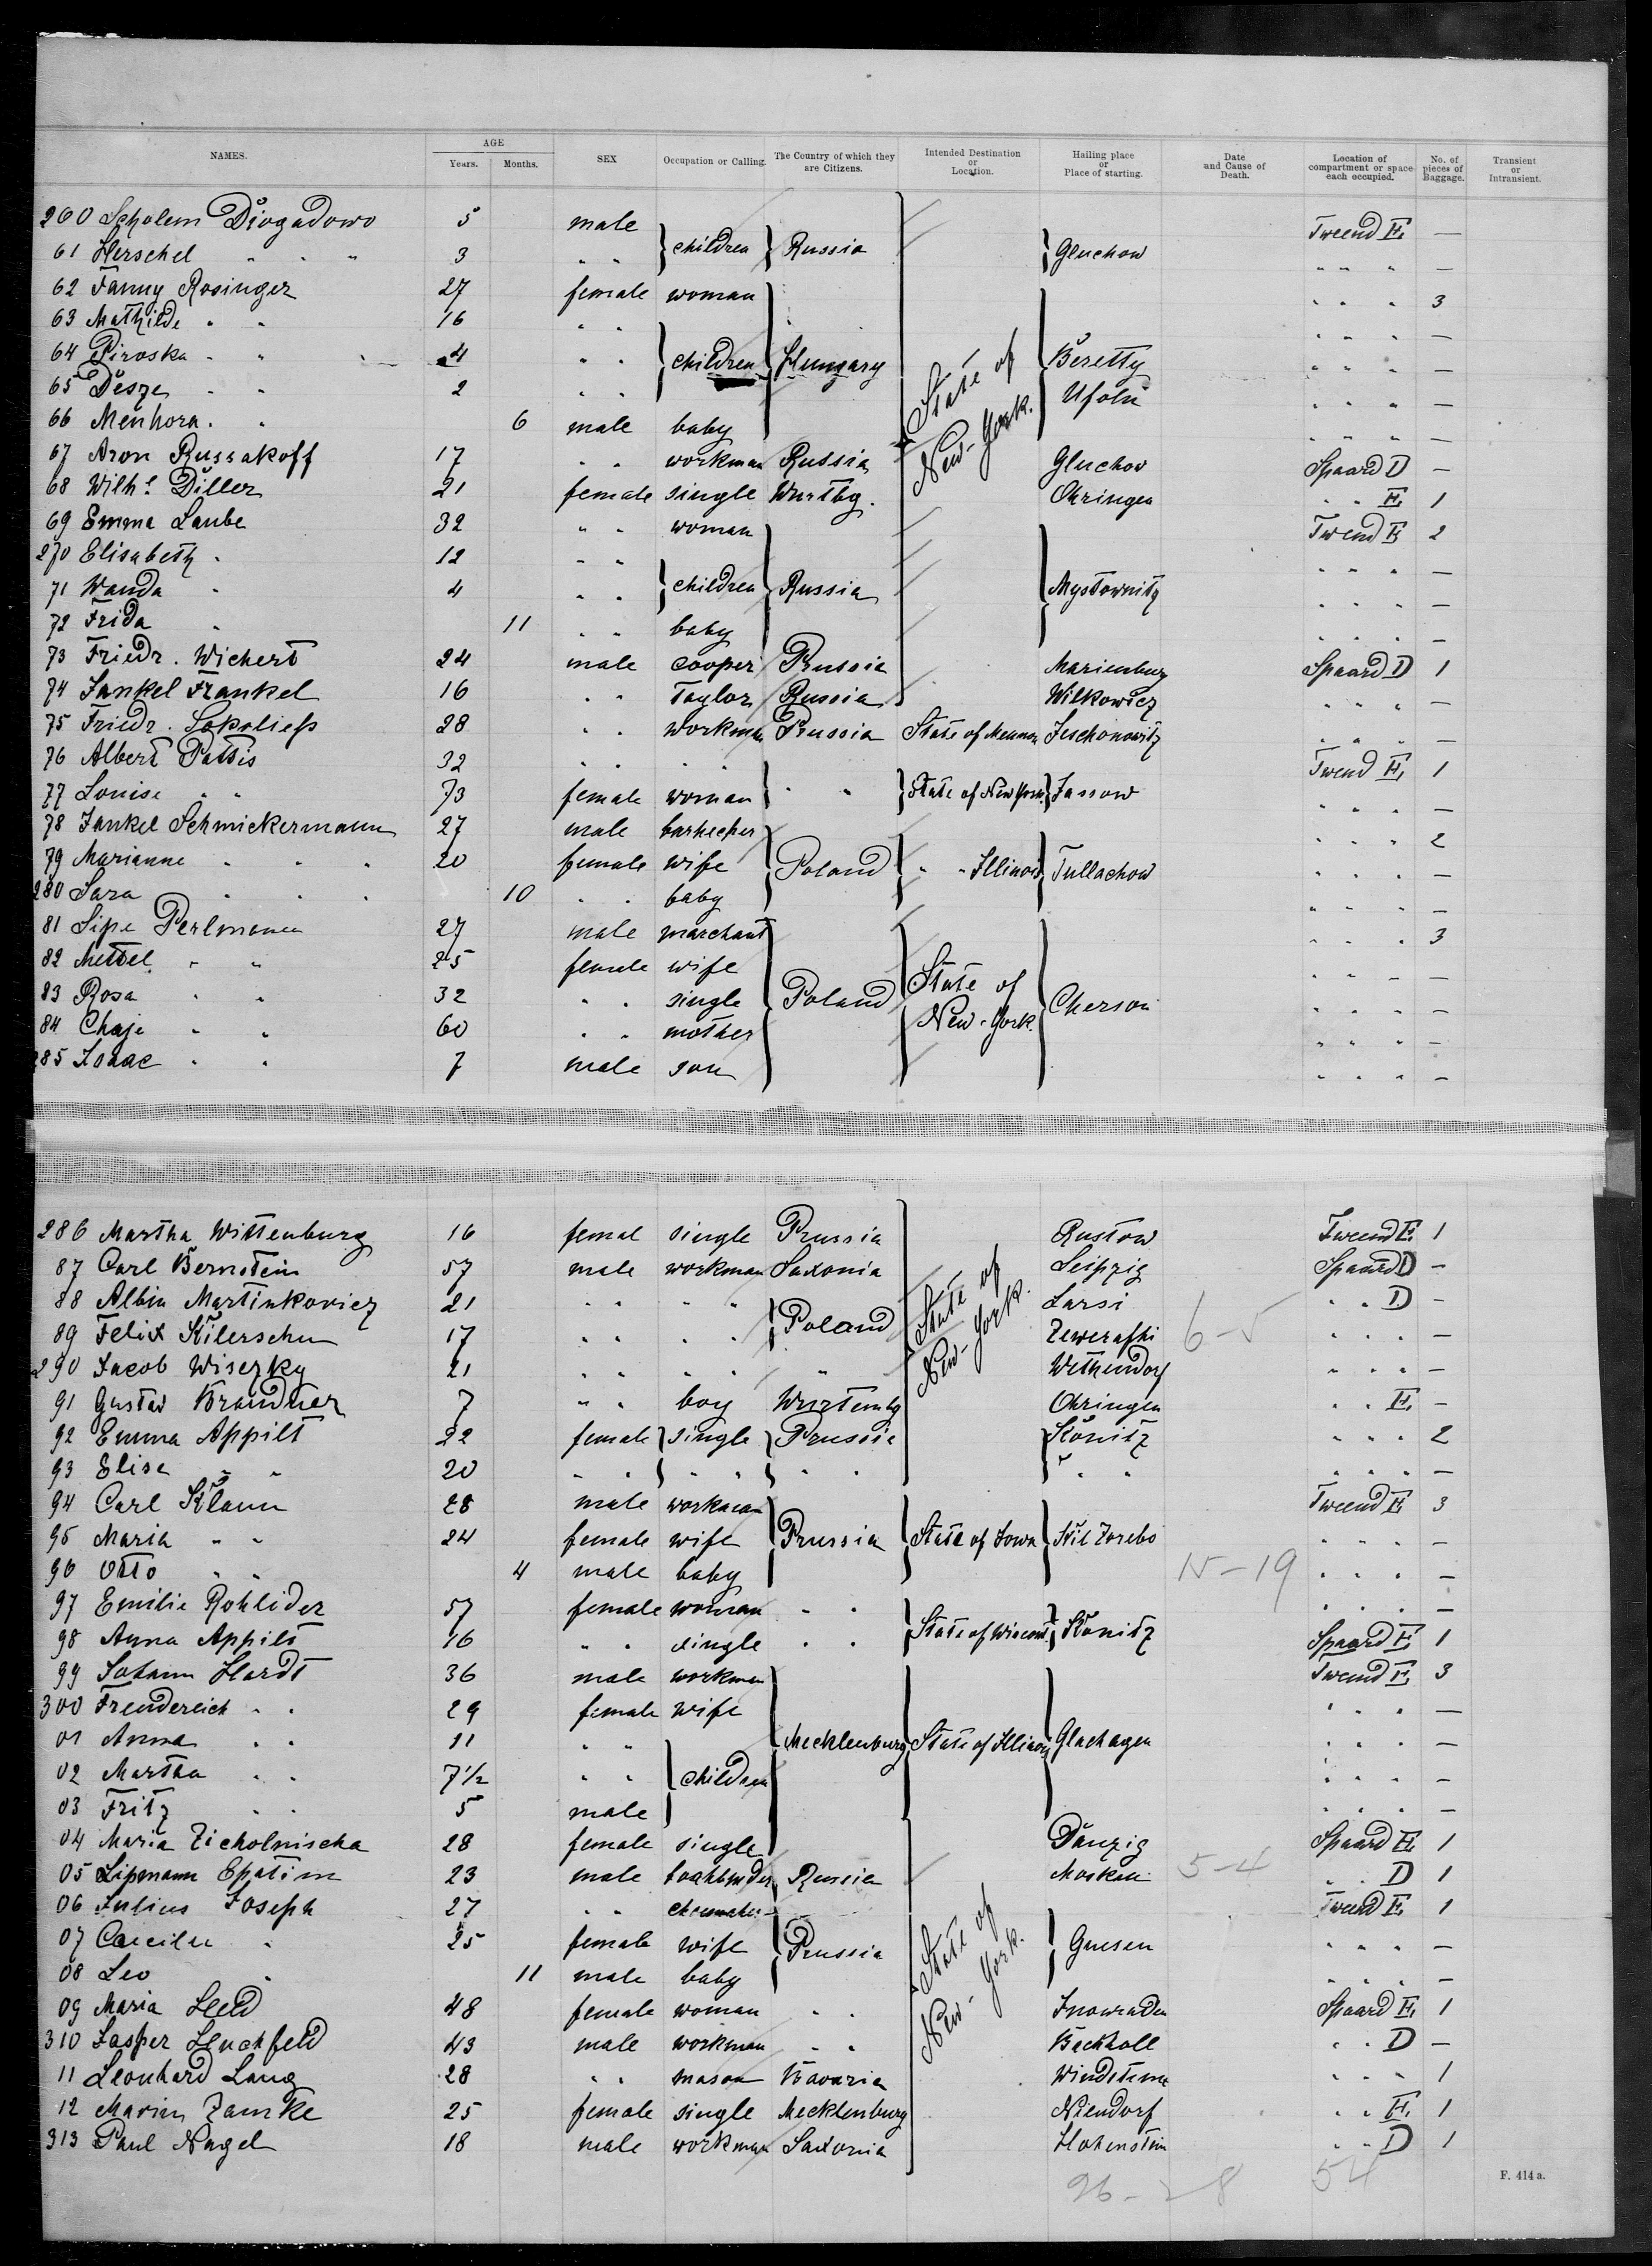 NAMES. AGE Years. Months. SEX Occupation or Calling. The Country of which they are Citizens. Intended Destination or Location. Hailing place or Place of starting. Date and Cause of Death. Location of compartment or space each occupied. No. of pieces of Baggage. Transient or Intransient.
260 Scholem 5 male } children } Russia } Gluchow Tweend E. —
61 Herschel " " " 3 " " " " " —
62 Fanny Rosinger 27 female woman " " " 3
63 Mathilde " " 16 " " " " " —
64 Piroska " " 4 " " } children } Hungary State of New-York. Beretty " " " —
65 Desze " " 2 " " " " " —
66 Menhora " " 6 male baby " " " —
67 Aron Russakoff 17 " " workman Russia Gluchov Spaard D —
68 Wilh. Diller 21 female single Wurtbg. Ohringen " " E. 1
69 Emma Laube 32 " " woman Twend E 2
270 Elisabeth " 12 " " " " " —
71 Wanda " 4 " " } children } Russia } Mystownitz " " " —
72 Frida " 11 " " baby " " " —
73 Friedr. Wichert 24 male cooper Prussia Marienburg Spaard D 1
74 Jankel Frankel 16 " " Taylor Russia Wilkowicz " " " —
75 Friedr. 28 " " workman Prussia State of Jeschonowitz " " " —
76 Albert Pattis 32 " " " " Twend E. 1
77 Louise " " 73 female woman } " " } State of New York } Jassow " " " —
78 Jankel Schmickermann 27 male barkeeper " " " 2
79 Marianne " " " 20 female wife } Poland } " " Illinois } Tullachow " " " —
280 Sara " " " 10 " " baby " " " —
81 Sipe Perlmann 27 male marchant " " " 3
82 Mettel " " 25 female wife " " " —
83 Rosa " " 32 " " single } Poland State of New-York. } Cherson " " " —
84 Chaje " " 60 " " mother " " " —
285 Isaac " " 7 male son " " " —
286 Martha Wittenburg 16 femal single Prussia Rustow Tweend E. 1
87 Carl Bernstein 57 male workman Saxonia Leipzig Spaard D —
88 Albin Martinkovicz 21 " " " " } Poland State of New-York. Larsi " " D —
89 Felix 17 " " " " 6-5 " " " —
290 Jacob Wisezky 21 " " " " " Wethendorf " " " —
91 Gustav Brandner 7 " " boy Wurtembg Ohringen " " E. —
92 Emma Appilt 22 female } single } Prussia } Konitz " " " 2
93 Elise " " 20 " " } " " } " " } " " " " " —
94 Carl Klann 28 male workman Tweend E 3
95 Maria " " 24 female wife } Prussia } State of Iowa } " " " —
96 Otto " " 4 male baby 15-19 " " " —
97 Emilie Rohlider 57 female woman " " " " " —
98 Anna Appilt 16 " " single " " } State of } Konitz Spaard E. 1
99 Johann Hardt 36 male workman Tweend E. 3
300 " " 29 female wife " " " —
01 Anna " " 11 " " } Mecklenburg } State of Illinois } Glashagen " " " —
02 Martha " " 7½ " " } children " " " —
03 Fritz " " 5 male " " " —
04 Maria Zicholnischa 28 female single Danzig Spaard E. 1
05 Lipmann 23 male Russia Moskau 5-4 " " D 1
06 Julius Joseph 27 " " Tweend E. 1
07 Caecilie " 25 female wife } Prussia State of New-York. } Gnesen " " " —
08 Leo " 11 male baby " " " —
09 Maria Held 48 female woman " " Spaard E. 1
310 Jasper 43 male workman " " " " D —
11 Leonhard Lang 28 " " mason Bavaria " " " 1
12 Zamke 25 female single Mecklenburg Niendorf " " E. 1
313 Paul Nagel 18 male workman Saxonia Hohenstein " " D 1
96-28 54
F. 414 a.